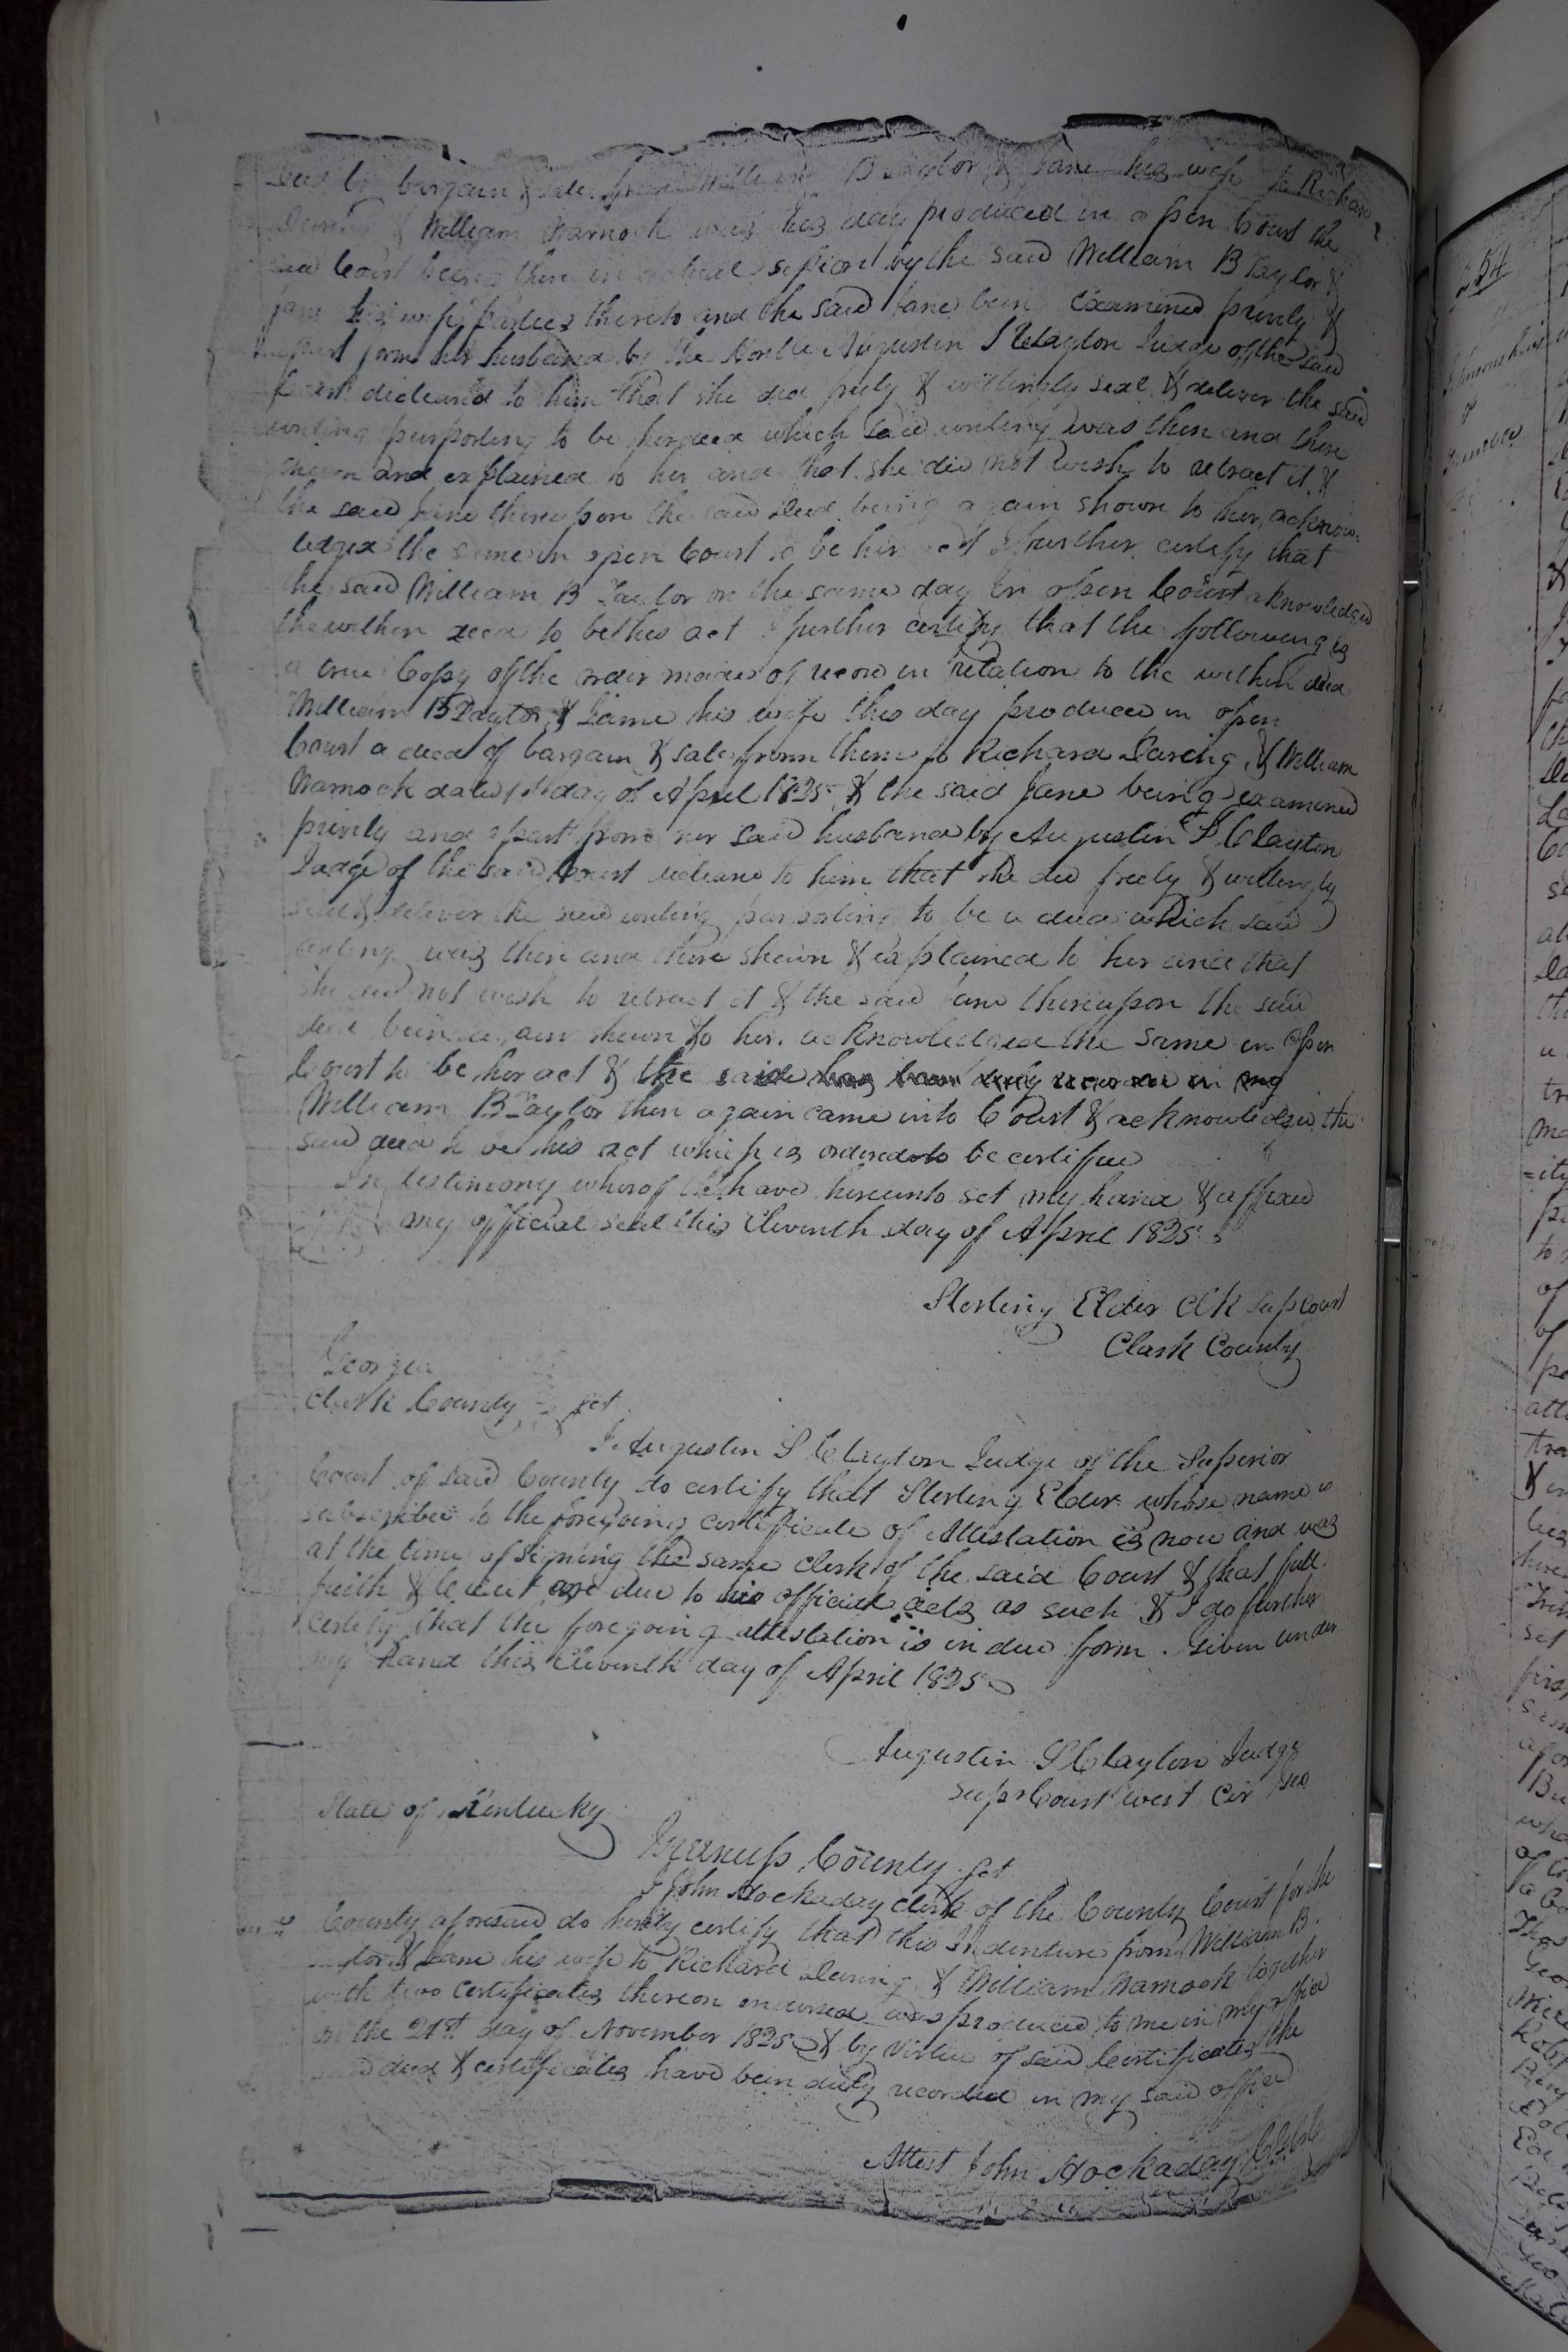 Deed of bargain & sale from William B Taylor & Jane his wife to Richard
& William Warnock was this day produced in open Court the
said Court being then in actual session by the said William B Taylor &
Jane his wife parties thereto and the said Jane being Examined privily &
apart from her husband by the Honble Augustin S Clayton Judge of the said
Court declared to him that she did freely & willingly seal & deliver the said
writing purporting to be her deed which said writing was then and there
shewn and explained to her and that she did not wish to retract it &
the said Jane thereupon the said deed being again shown to her, acknow-
ledged the same in open Court to be her act I further certify that
the said William B Taylor on the same day in open Court aknowledged
the within deed to be his act I further certify that the following is
a true Copy of the order made of record in relation to the within deed
William B Taylor & Jane his wife this day produced in open
Court a deed of bargain & sale from them to Richard & William
Warnock dated day of April 1825 & the said Jane being examined
privily and apart from her said husband by Augustin S Clayton
Judge of the said Court declared to him that she did freely & willingly
seal & deliver the said writing purporting to be a deed which said
writing was then and there shewn & explained to her and that
she did not wish to retract it & the said Jane thereupon the said
deed being again shewn to her, acknowledged the same in open
Court to be her act & the said has been duly recorded in my
William B Taylor then again came into Court & acknowledged the
said deed to be his act which is ordered to be certified
In testimony whereof I have hereunto set my hand & affixed
my official seal this Eleventh day of April 1825
Sterling Elder Clk Sup Court
Clark County
Georgia
Clark County Sct
I Augustin S Clayton Judge of the Superior
Court of said County do certify that Sterling Elder whose name is
subscribed to the foregoing certificate of Attestation is now and was
at the time of signing the same clerk of the said Court & that full
faith & Credit are due to his official acts as such & I do further
certify that the foregoing attestation is in due form. Given under
my hand this Eleventh day of April 1825
Augustin S Clayton Judge
Supr Court west Cir Geo
State of Kentucky
Greenup County Sct
I John Hockaday clerk of the County Court for the
County aforesaid do hereby certify that this Indenture from William B.
Taylor & Jane his wife to Richard & William Warnock together
with two certificates thereon endorsed was produced to me in my office
on the 21st day of November 1825 & by virtue of said Certificates the
said deed & certificates have been duly recorded in my said office
Attest John Hockaday